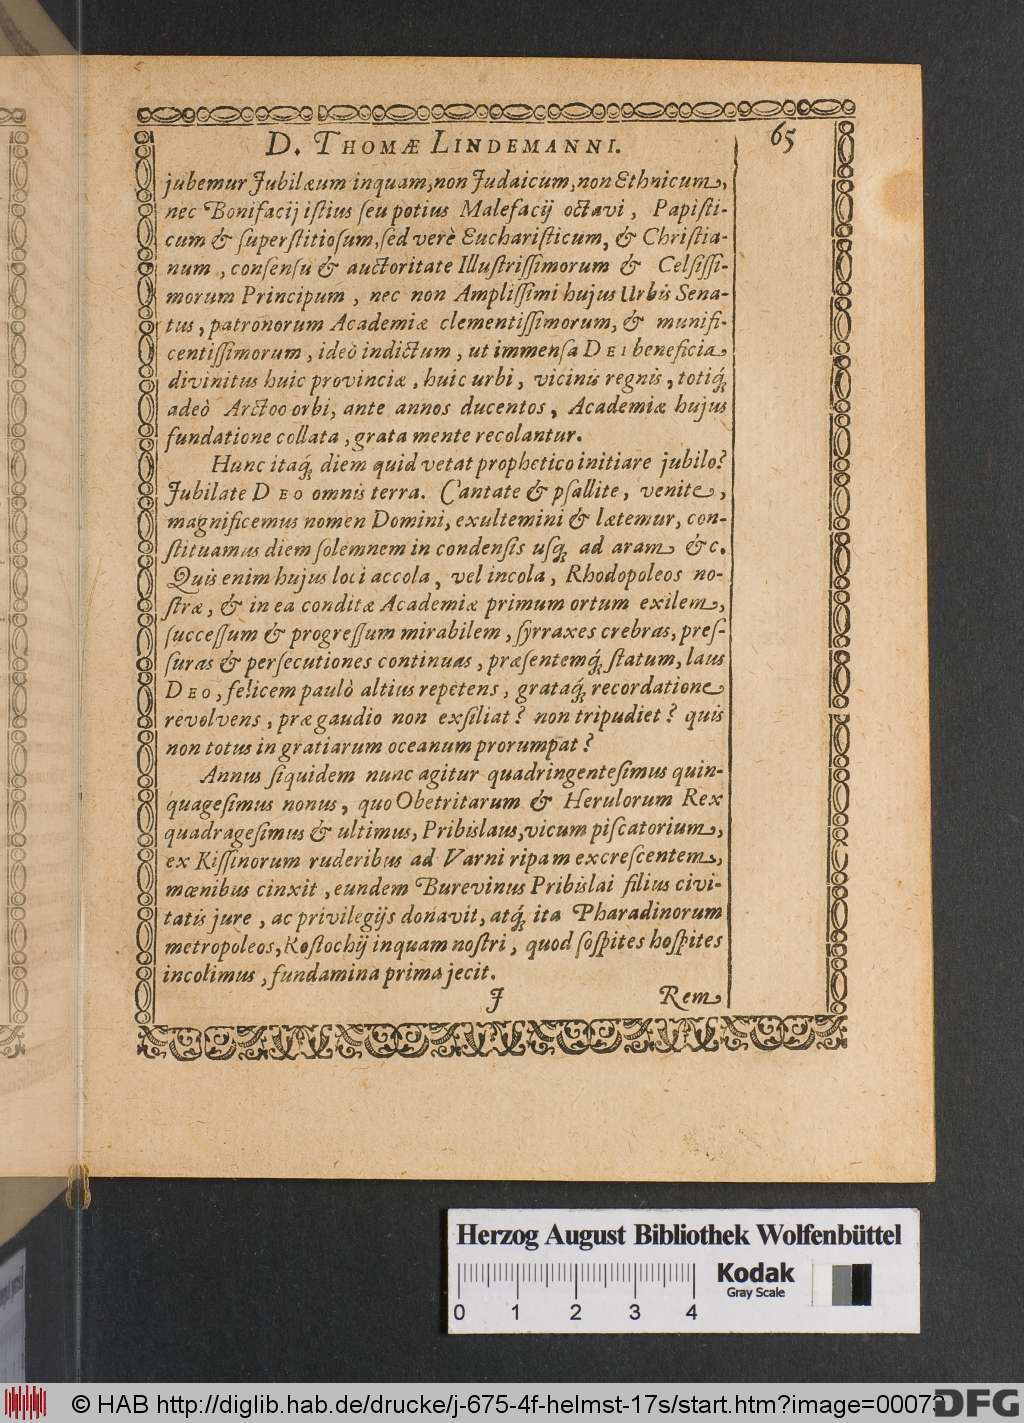 D. THOMÆ LINDEMANNI. 65
jubemur Jubilæum inquam, non Judaicum, non Ethnicum,
nec Bonifacij iſtius ſeu potius Malefacij octavi, Papiſti-
cum & ſuperſtitioſum, ſed verè Euchariſticum, & Chriſtia-
num, conſenſu & auctoritate Illuſtriſſimorum & Celſiſſi-
morum Principum, nec non Ampliſſimi hujus Urbis Sena-
tus, patronorum Academiæ clementiſſimorum, & munifi-
centiſſimorum, ideò indictum, ut immenſa DEI beneficia
divinitus huic provinciæ, huic urbi, vicinis regnis, totiq́;
adeò Arctoo orbi, ante annos ducentos, Academiæ hujus
fundatione collata, grata mente recolantur.
Hunc itaq́; diem quid vetat prophetico initiare jubilo?
Jubilate DEO omnis terra. Cantate & pſallite, venite,
magnificemus nomen Domini, exultemini & lætemur, con-
ſtituamus diem ſolemnem in condenſis uſq; ad aram &c.
Quis enim hujus loci accola, vel incola, Rhodopoleos no-
ſtræ, & in ea conditæ Academiæ primum ortum exilem,
ſucceſſum & progreſſum mirabilem, ſyrraxes crebras, preſ-
ſuras & perſecutiones continuas, præſentemq́; ſtatum, laus
DEO, felicem paulò altius repetens, grataq́; recordatione
revolvens, præ gaudio non exſiliat? non tripudiet? quis
non totus in gratiarum oceanum prorumpat?
Annus ſiquidem nunc agitur quadringenteſimus quin-
quageſimus nonus, quo Obetritarum & Herulorum Rex
quadrageſimus & ultimus, Pribislaus, vicum piſcatorium,
ex Kiſſinorum ruderibus ad Varni ripam excreſcentem,
mœnibus cinxit, eundem Burevinus Pribislai filius civi-
tatis jure, ac privilegijs donavit, atq́; ita Pharadinorum
metropoleos, Roſtochij inquam noſtri, quod ſoſpites hoſpites
incolimus, fundamina prima jecit.
I Rem
Herzog August Bibliothek Wolfenbüttel
Kodak
Gray Scale
0 1 2 3 4
© HAB http://diglib.hab.de/drucke/j-675-4f-helmst-17s/start.htm?image=00073
DFG